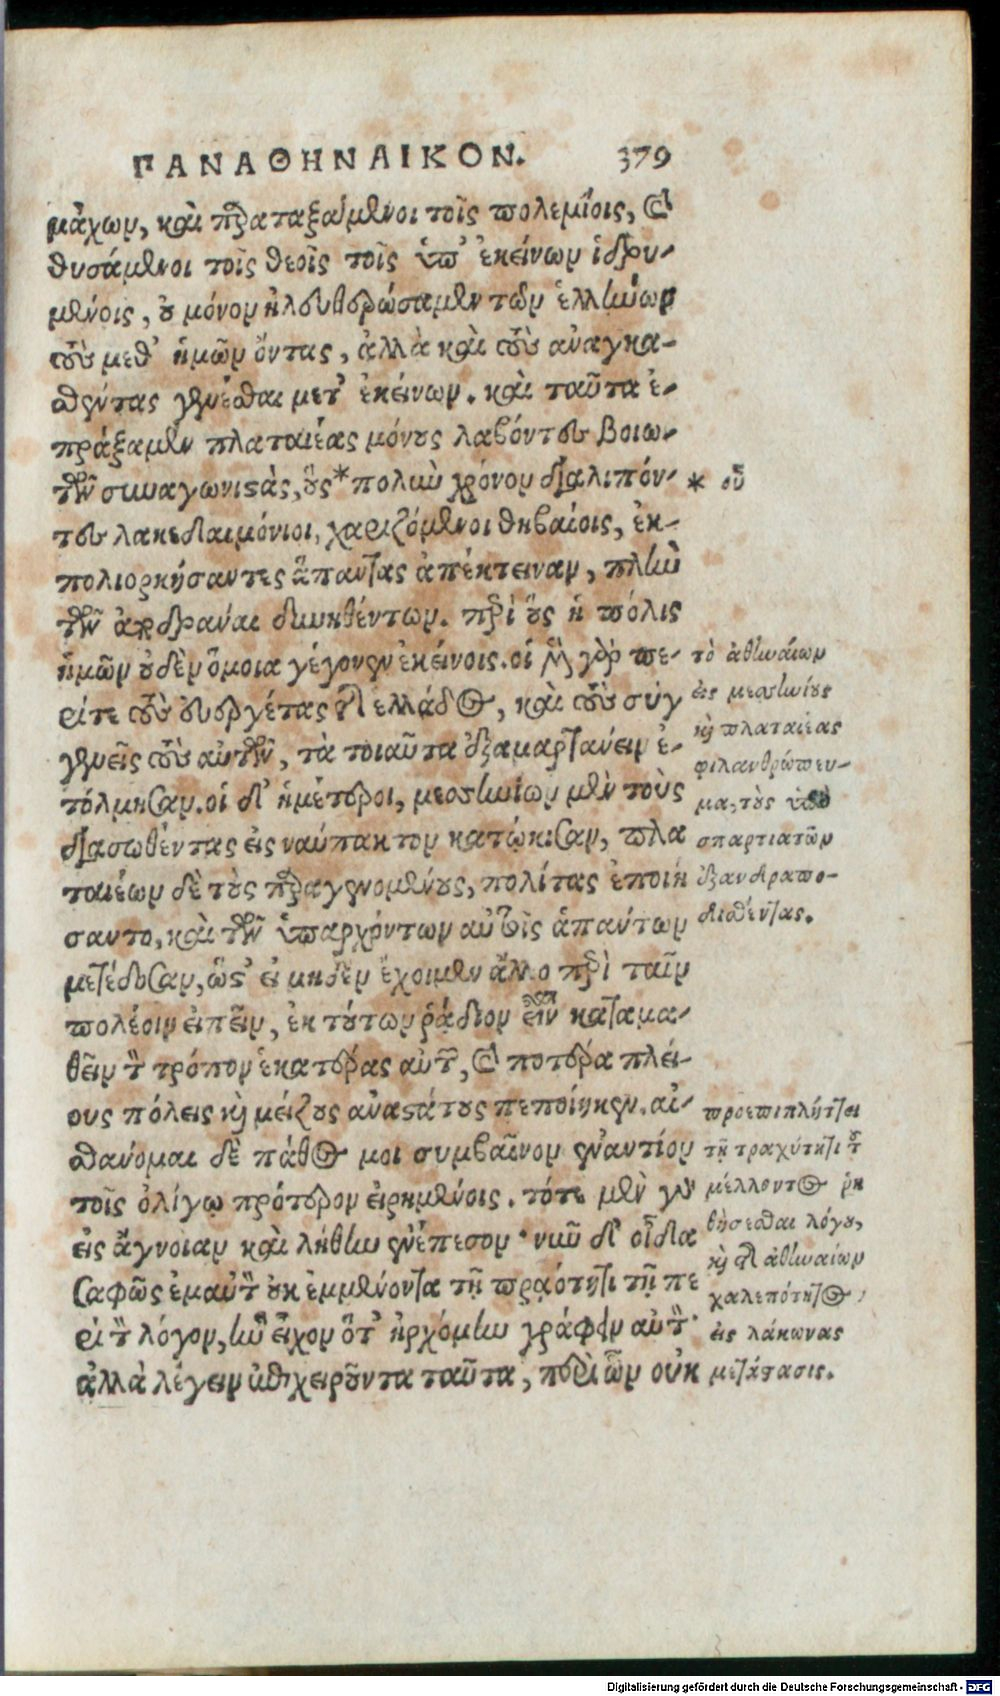 ΠΑΝΑΘΗΝΑΙΚΟΝ. 379
μάχων, καὶ παραταξάμενοι τοῖς πολεμίοις, καὶ
θυσάμενοι τοῖς θεοῖς τοῖς ὑπ' ἐκείνων ἱδρυ-
μένοις, οὐ μόνον ἠλευθερώσαμεν τῶν ἑλλήνων
τοὺς μεθ' ἡμῶν ὄντας, ἀλλὰ καὶ τοὺς ἀναγκα-
σθέντας γενέσθαι μετ' ἐκείνων. καὶ ταῦτα ἐ-
πράξαμεν πλαταιέας μόνους λαβόντες βοιω-
τῶν συναγωνιστὰς, οὓς * πολὺν χρόνον διαλιπόν-
τες λακεδαιμόνιοι, χαριζόμενοι θηβαίοις, ἐκ-
πολιορκήσαντες ἅπαντας ἀπέκτειναν, πλὴν
τῶν ἀποδρᾶναι δυνηθέντων. περὶ οὓς ἡ πόλις
ἡμῶν οὐδὲν ὅμοια γέγονεν ἐκείνοις. οἱ μὲν γὰρ πε-
ρί τε τοὺς εὐεργέτας τῆς ἑλλάδος, καὶ τοὺς συγ
γενεῖς τοὺς αὐτῶν, τὰ τοιαῦτα ἐξαμαρτάνειν ἐ-
τόλμησαν. οἱ δ' ἡμέτεροι, μεσσηνίων μὲν τοὺς
διασωθέντας εἰς ναύπακτον κατῴκισαν, πλα
ταιέων δὲ τοὺς παραγενομένους, πολίτας ἐποιή
σαντο, καὶ τῶν ὑπαρχόντων αὐτοῖς ἁπάντων
μετέδοσαν, ὥστ' εἰ μηδὲν ἔχοιμεν ἄλλο περὶ ταῖν
πολέοιν εἰπεῖν, ἐκ τούτων ῥᾴδιον εἶναι καταμα-
θεῖν τὸν τρόπον ἑκατέρας αὐτῶν, καὶ ποτέρα πλεί-
ους πόλεις καὶ μείζους ἀναστάτους πεποίηκεν. αἰ-
σθάνομαι δὲ πάθος μοι συμβαῖνον ἐναντίον
τοῖς ὀλίγῳ πρότερον εἰρημένοις. τότε μὲν γὰρ
εἰς ἄγνοιαν καὶ λήθην ἐνέπεσον· νῦν δ' οἶδα
σαφῶς ἐμαυτὸν οὐκ ἐμμένοντα τῇ πραότητι τῇ πε
ρὶ τὸν λόγον, ἣν εἶχον ὅτ' ἠρχόμην γράφειν αὐτόν·
ἀλλὰ λέγειν ἐπιχειροῦντα ταῦτα, περὶ ὧν οὐκ
* οὗ
τὸ ἀθηναίων
εἰς μεσσηνίους
καὶ πλαταιέας
φιλανθρώπευ-
μα, τοὺς ὑπὸ
σπαρτιατῶν
ἐξανδραπο-
δισθέντας.
προεπιπλήττει
τῇ τραχύτητι τοῦ
μέλλοντος ῥη
θήσεσθαι λόγου,
καὶ τῆς ἀθηναίων
χαλεπότητος,
εἰς λάκωνας
μετάστασις.
Digitalisierung gefördert durch die Deutsche Forschungsgemeinschaft - DFG